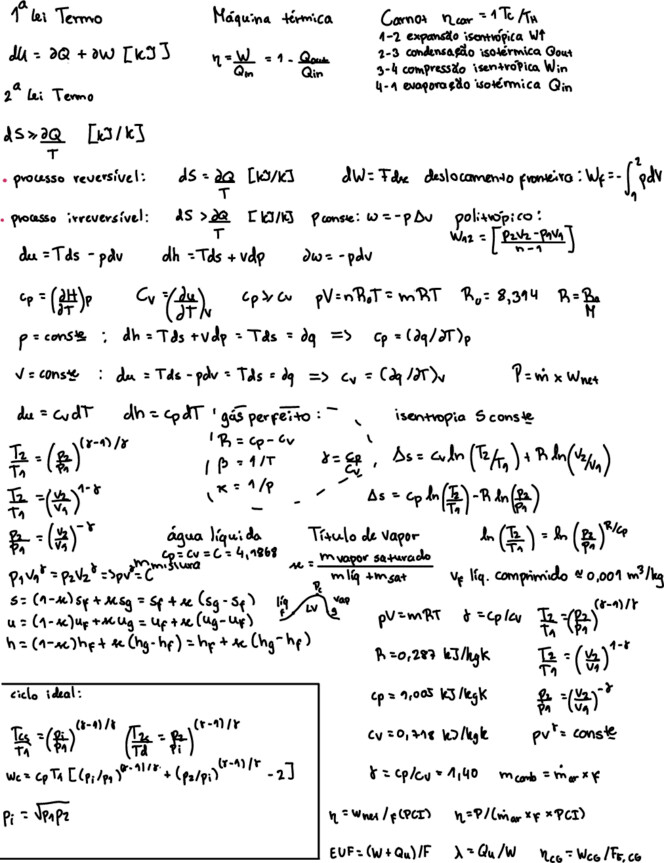 1ª Lei Termo
du = ∂Q + ∂W [kJ]
2ª Lei Termo
dS ≥ ∂Q/T [kJ/K]
Máquina térmica
η = W/Qin = 1 - Qout/Qin
Carnot ηcar = 1 Tc/TH
1-2 expansão isentrópica W↑
2-3 condensação isotérmica Qout
3-4 compressão isentrópica Win
4-1 evaporação isotérmica Qin
• processo reversível: dS = ∂Q/T [kJ/K] dW = Fdx deslocamento fronteira: Wf = -∫₁² pdV
• processo irreversível: dS > ∂Q/T [kJ/K] p conste: w = -pΔv politrópico: W12 = [(p2v2 - p1v1)/(n-1)]
du = Tds - pdv dh = Tds + vdp ∂w = -pdv
cp = (∂H/∂T)p Cv = (∂u/∂T)v cp > cv pV = nR₀T = mRT R₀ = 8,314 R = R₀/M
p = conste : dh = Tds + vdp = Tds = ∂q => cp = (∂q/∂T)p
V = conste : du = Tds - pdv = Tds = ∂q => cv = (∂q/∂T)v P = ṁ x Wnet
du = cvdT dh = cpdT gás perfeito: isentropia S conste
R = cp - cv
β = 1/T
κ = 1/p
γ = cp/cv
T2/T1 = (p2/p1)^(γ-1)/γ
T2/T1 = (v2/v1)^1-γ
p2/p1 = (v2/v1)^-γ
p1v1^γ = p2v2^γ => pv^γ = C
Δs = cv ln(T2/T1) + R ln(v2/v1)
Δs = cp ln(T2/T1) - R ln(p2/p1)
ln(T2/T1) = ln(p2/p1)^R/cp
água líquida
cp = cv = C = 4,1868
mmistura
Título de vapor
x = mvapor saturado / mlíq + msat
vf líq. comprimido ≈ 0,001 m³/kg
s = (1-x)sf + xsg = sf + x(sg - sf)
u = (1-x)uf + xug = uf + x(ug - uf)
h = (1-x)hf + x(hg - hf) = hf + x(hg - hf)
líq f Pc LV g vap
pV = mRT γ = cp/cv T2/T1 = (p2/p1)^(γ-1)/γ
R = 0,287 kJ/kgK T2/T1 = (v2/v1)^1-γ
cp = 1,005 kJ/kgK p2/p1 = (v2/v1)^-γ
cv = 0,718 kJ/kgk pv^γ = conste
γ = cp/cv = 1,40 mcomb = ṁar x F
ciclo ideal:
Tcs/T1 = (pi/p1)^(γ-1)/γ (T2c/Td = p2/pi)^(γ-1)/γ
wc = cpT1 [(pi/p1)^(γ-1)/γ + (p2/pi)^(γ-1)/γ - 2]
pi = √p1p2
η = wnet/F(PCI) η = P/(ṁar x F x PCI)
EUF = (W + Qu)/F λ = Qu/W ηCG = WCG/FF,CG